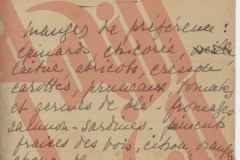 mangez de préférence :
épinards, chicorée
laitue abricots, cresson
carottes pruneaux, tomates
et germes de blé - fromages
saumon - sardines. piments
fraises des bois, citron, orange